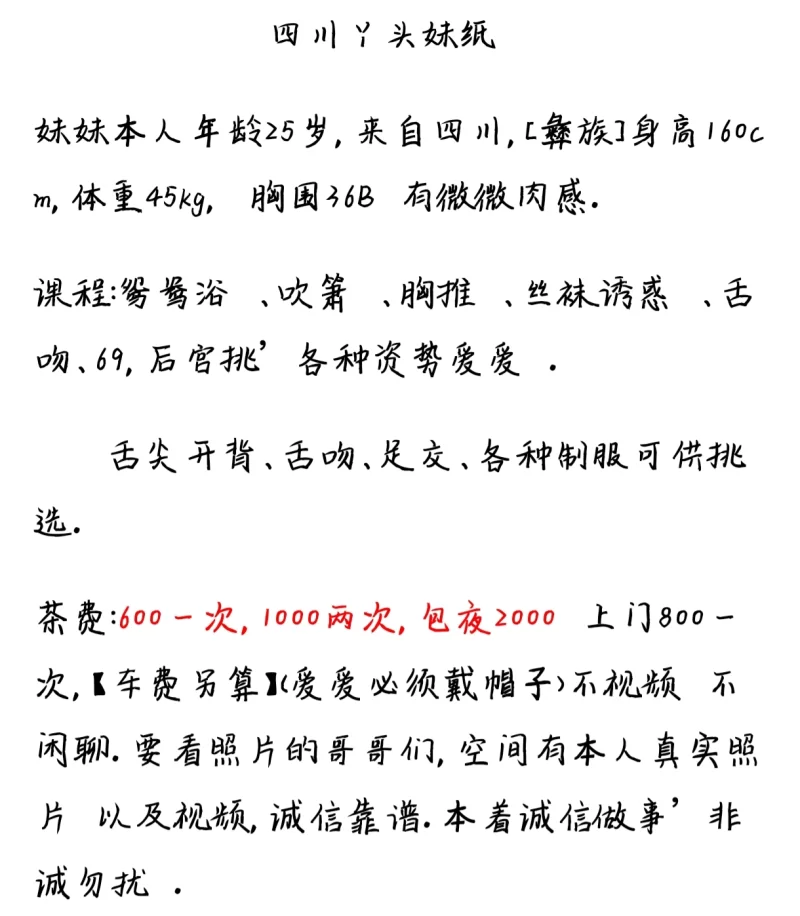 四川丫头妹纸
妹妹本人年龄25岁,来自四川,[彝族]身高160c
m,体重45kg, 胸围36B 有微微肉感.
课程:鸳鸯浴 、吹箫 、胸推 、丝袜诱惑 、舌
吻、69,后宫挑’各种资势爱爱 .
舌尖开背、舌吻、足交、各种制服可供挑
选.
茶费:600一次,1000两次,包夜2000 上门800一
次,【车费另算】(爱爱必须戴帽子)不视频 不
闲聊.要看照片的哥哥们,空间有本人真实照
片 以及视频,诚信靠谱.本着诚信做事’非
诚勿扰 .